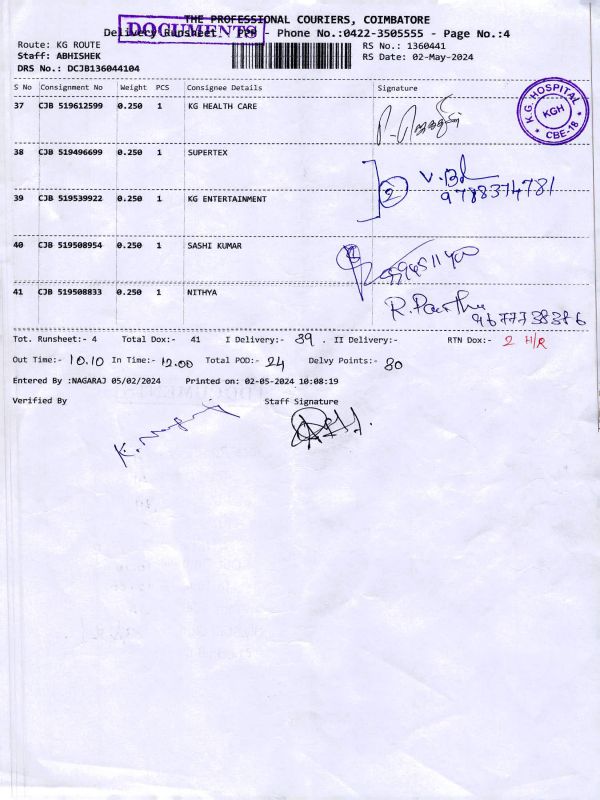 THE PROFESSIONAL COURIERS, COIMBATORE
DOCUMENTS
Delivery Runsheet - Phone No.:0422-3505555 - Page No.:4
Route: KG ROUTE RS No.: 1360441
Staff: ABHISHEK RS Date: 02-May-2024
DRS No.: DCJB136044104
S No Consignment No Weight PCS Consignee Details Signature
37 CJB 519612599 0.250 1 KG HEALTH CARE
K.G. HOSPITAL KGH CBE-18
38 CJB 519496699 0.250 1 SUPERTEX
2 9788374781
39 CJB 519539922 0.250 1 KG ENTERTAINMENT
40 CJB 519508954 0.250 1 SASHI KUMAR
41 CJB 519508833 0.250 1 NITHYA
R. Partha
9677738386
Tot. Runsheet:- 4 Total Dox:- 41 I Delivery:- 39 . II Delivery:- RTN Dox:- 2 H/R
Out Time:- 10.10 In Time:- 12.00 Total POD:- 24 Delvy Points:- 80
Entered By :NAGARAJ 05/02/2024 Printed on: 02-05-2024 10:08:19
Verified By Staff Signature